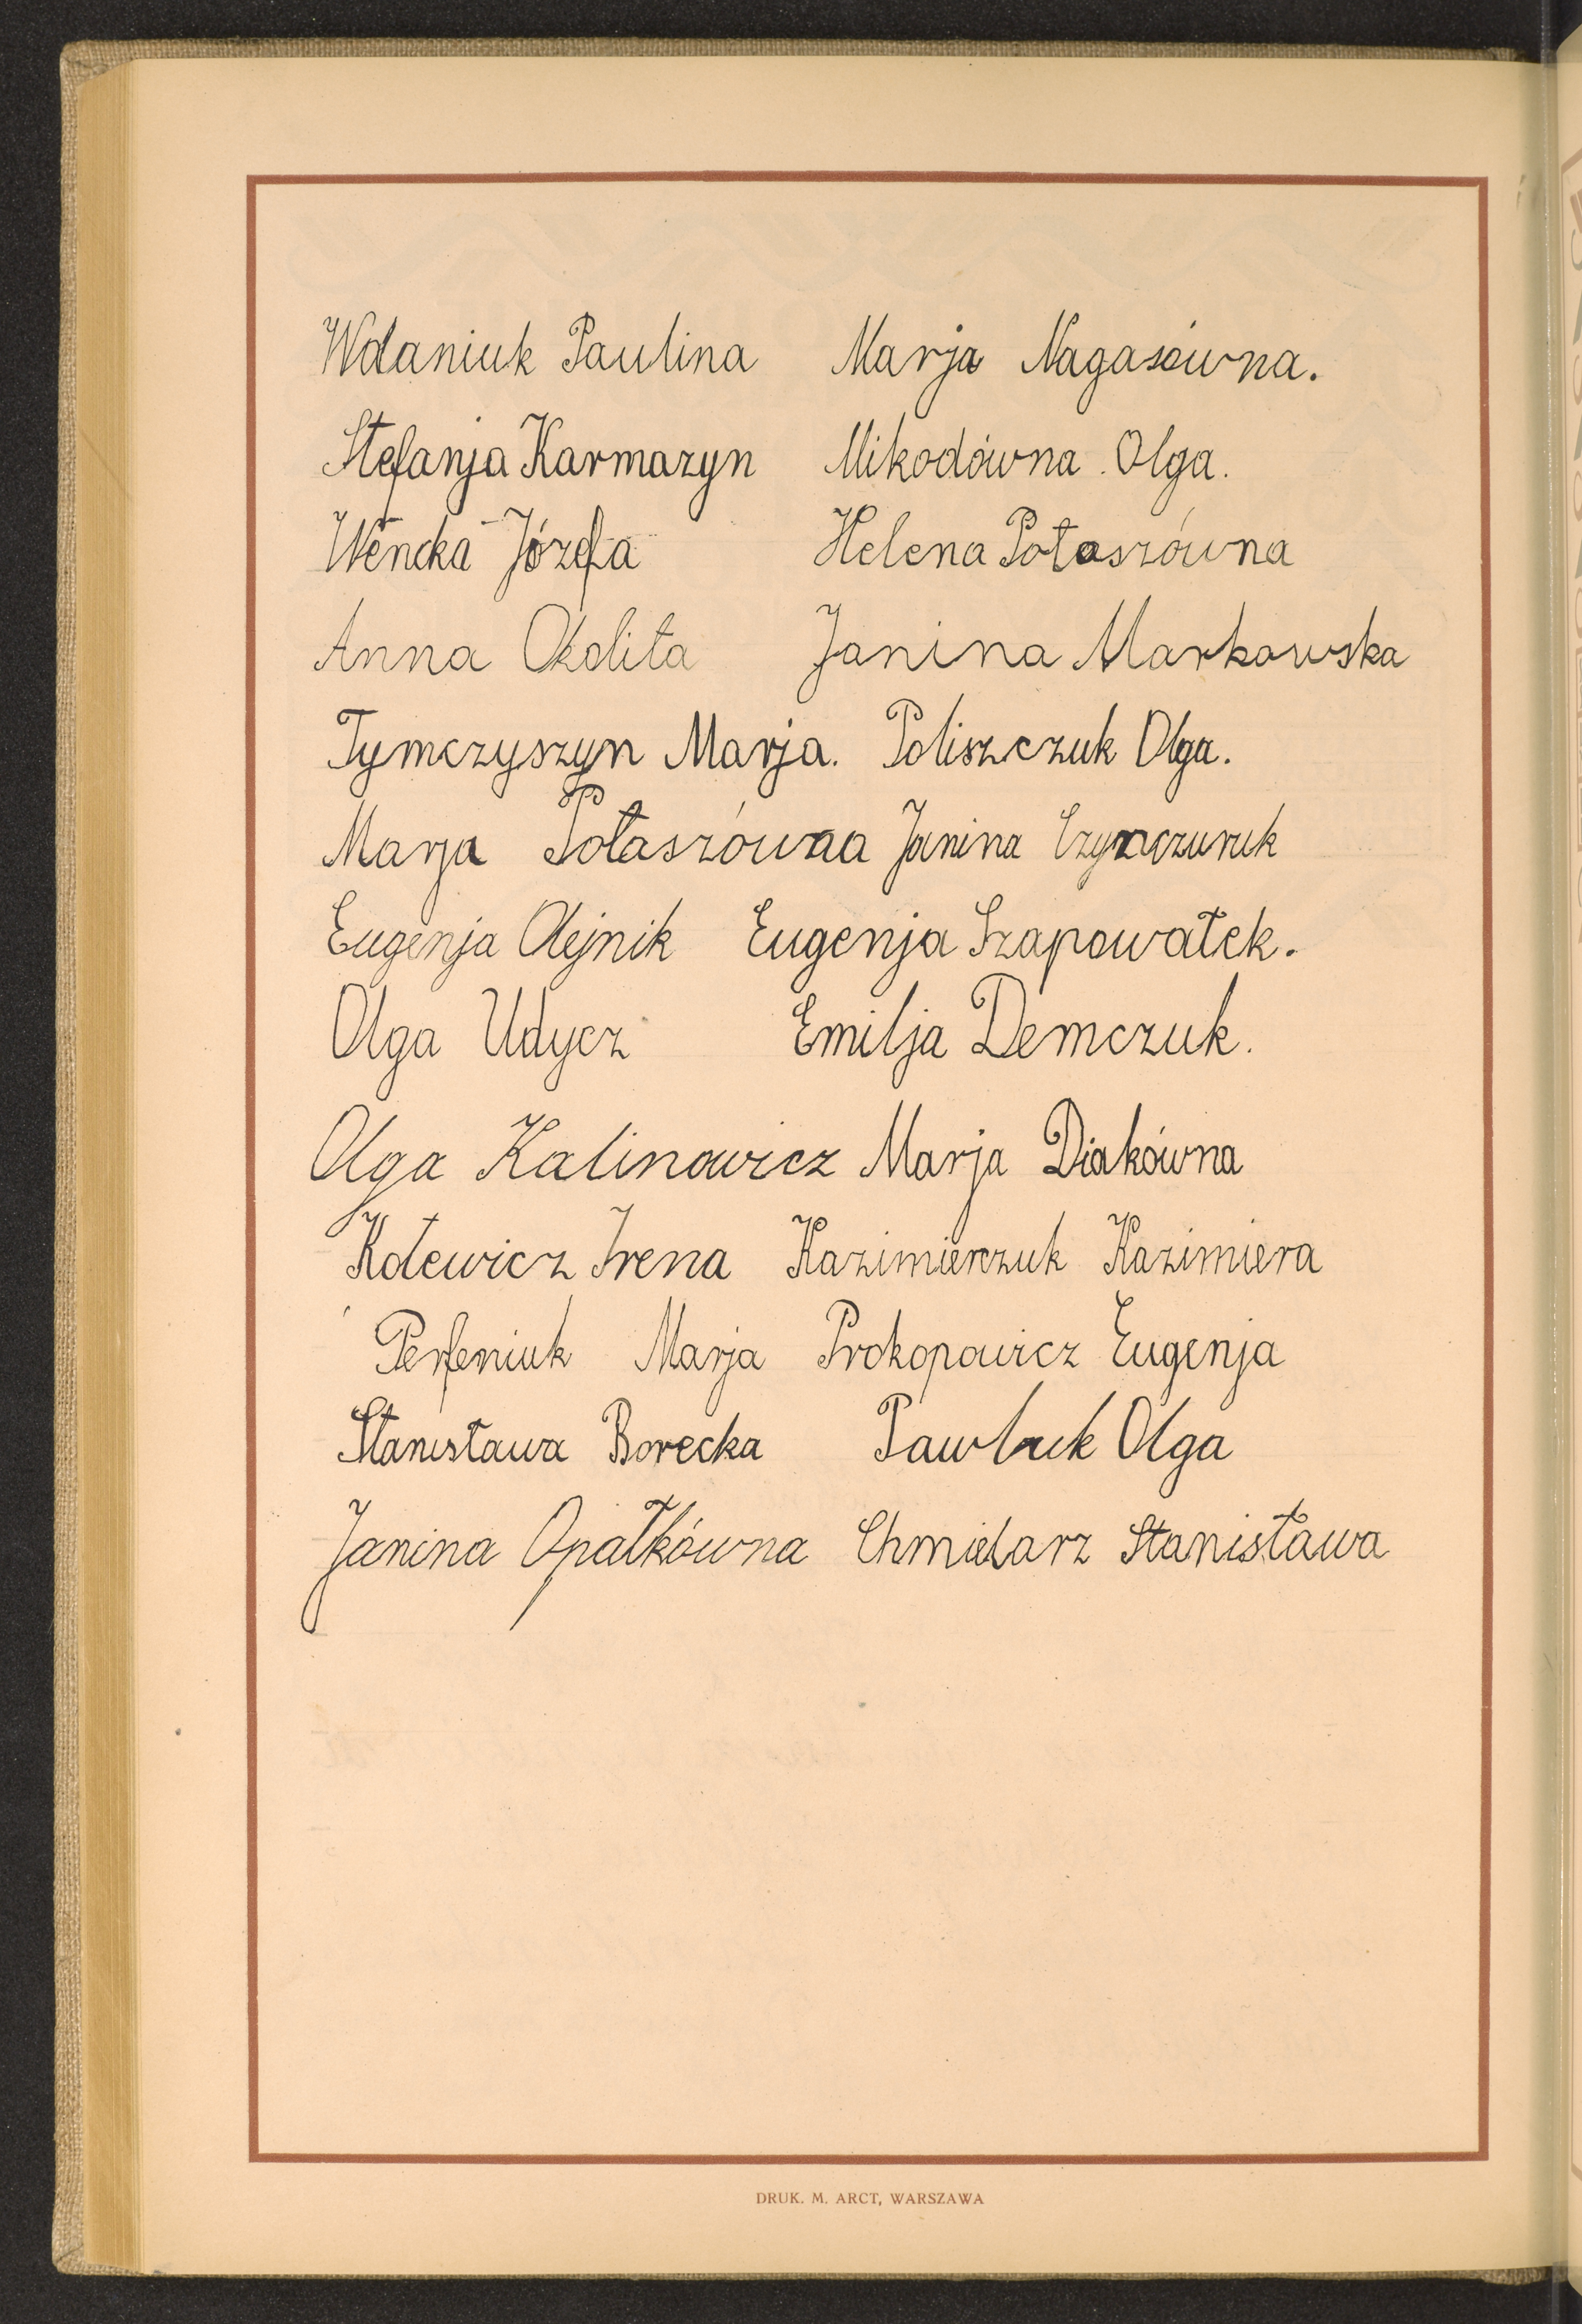 Wdaniuk Paulina Marja Nagasówna.
Stefanja Karmazyn Mikodówna. Olga.
Wencka Józefa Helena Potaszówna
Anna Okolita Janina Markowska
Tymczyszyn Marja. Poliszczuk Olga.
Marja Potaszówna Janina
Eugenja Olejnik Eugenja Szapowałek.
Olga Udycz Emilja Demczuk.
Olga Kalinowicz Marja Diakówna
Kotewicz Irena Kazimierczuk Kazimiera
Perfeniuk Marja Prokopowicz Eugenja
Stanisława Borecka Pawluk Olga
Janina Opałkówna Chmielarz Stanisława
DRUK. M. ARCT, WARSZAWA